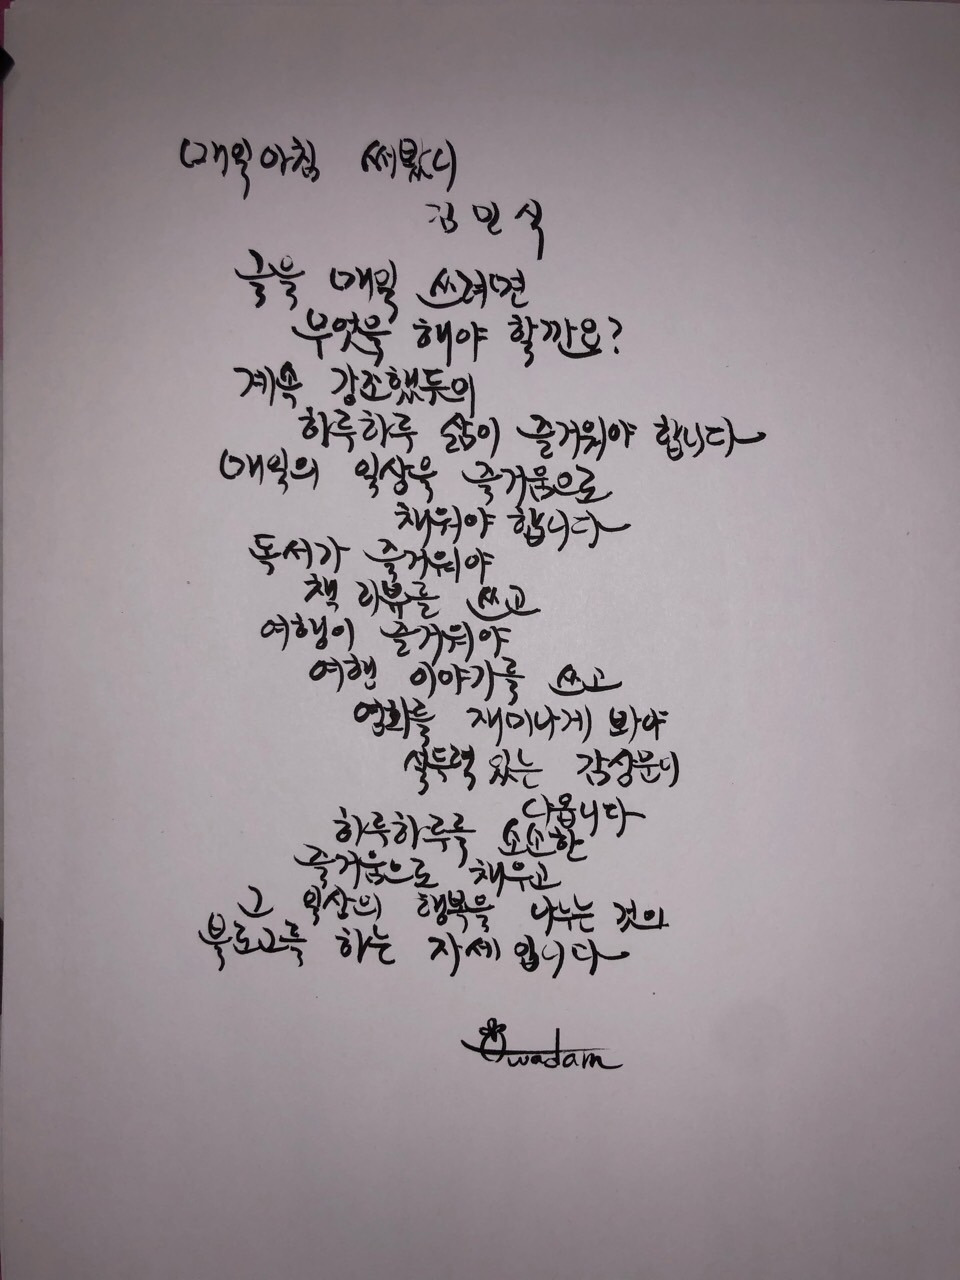 매일아침 써봤니
김민식
글을 매일 쓰려면
무엇을 해야 할깐요?
계속 강조했듯이
하루하루 삶이 즐거워야 합니다
매일의 일상을 즐거움으로
채워야 합니다
독서가 즐거워야
책 리뷰를 쓰고
여행이 즐거워야
여행 이야기를 쓰고
영화를 재미나게 봐야
설득력 있는 감상문이
나옵니다
하루하루를 소소한
즐거움으로 채우고
그 일상의 행복을 나누는 것이
블로그를 하는 자세입니다
wadam